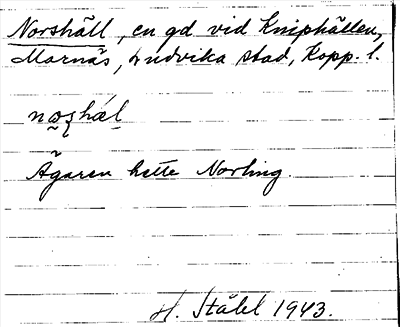 Norshäll, en gd vid Kniphällen,
Marnäs, Ludvika stad, Kopp. l.
Ägaren hette Norling.
H. Ståhl 1943.